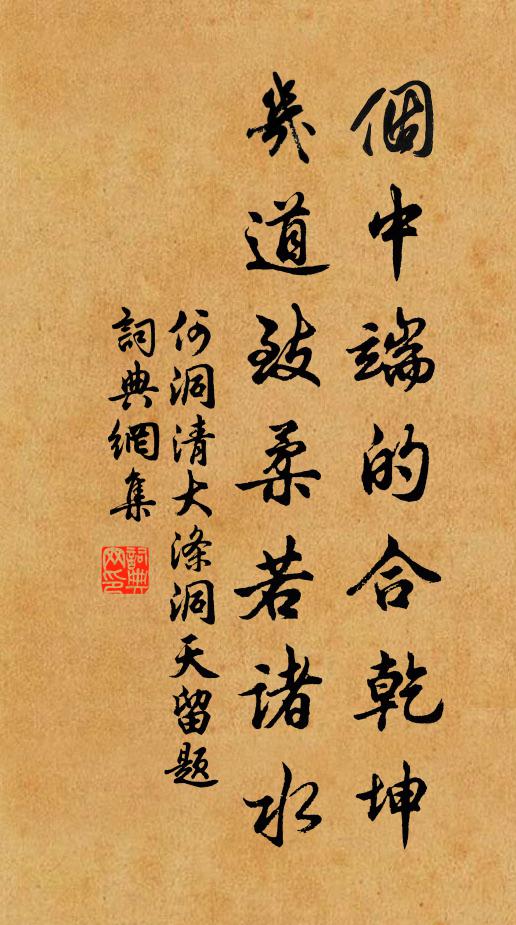 個中端的合乾坤
幾道致柔若諸水
何洞清大滌洞天留題
詞典網集
詞典網印